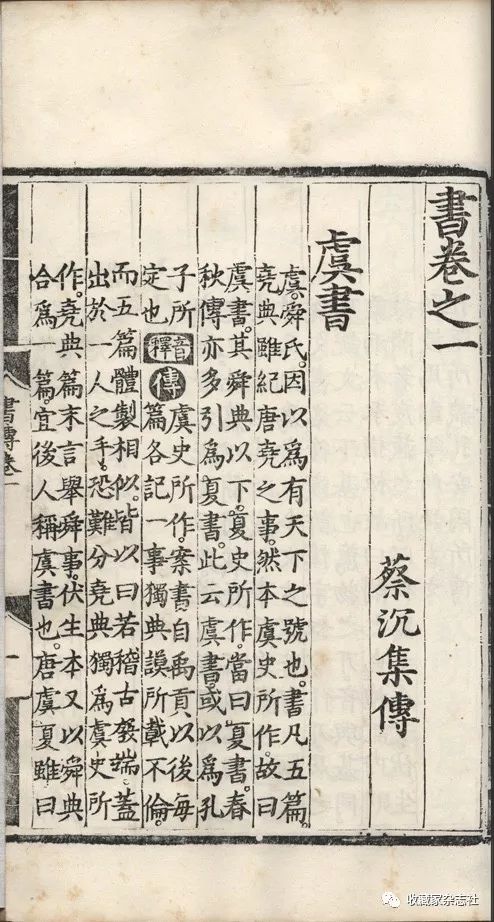 書卷之一
蔡沉集傳
虞書
虞。舜氏。因以為有天下之號也。書凡五篇。
堯典雖紀唐堯之事。然本虞史所作。故曰
虞書。其舜典以下。夏史所作。當曰夏書。春
秋傳亦多引為夏書。此云虞書。或以為孔
子所
定也
音釋
傳
虞史所作。案書自禹貢以後每
篇各記一事。獨典謨所載不倫。
而五篇體製相似。皆以曰若稽古發端。蓋
出於一人之手。恐難分堯典獨為虞史所
作。堯典篇末言舉舜事。伏生本又以舜典
合為一篇。宜後人稱虞書也。唐虞夏雖曰
書傳卷一
一
收藏家杂志社